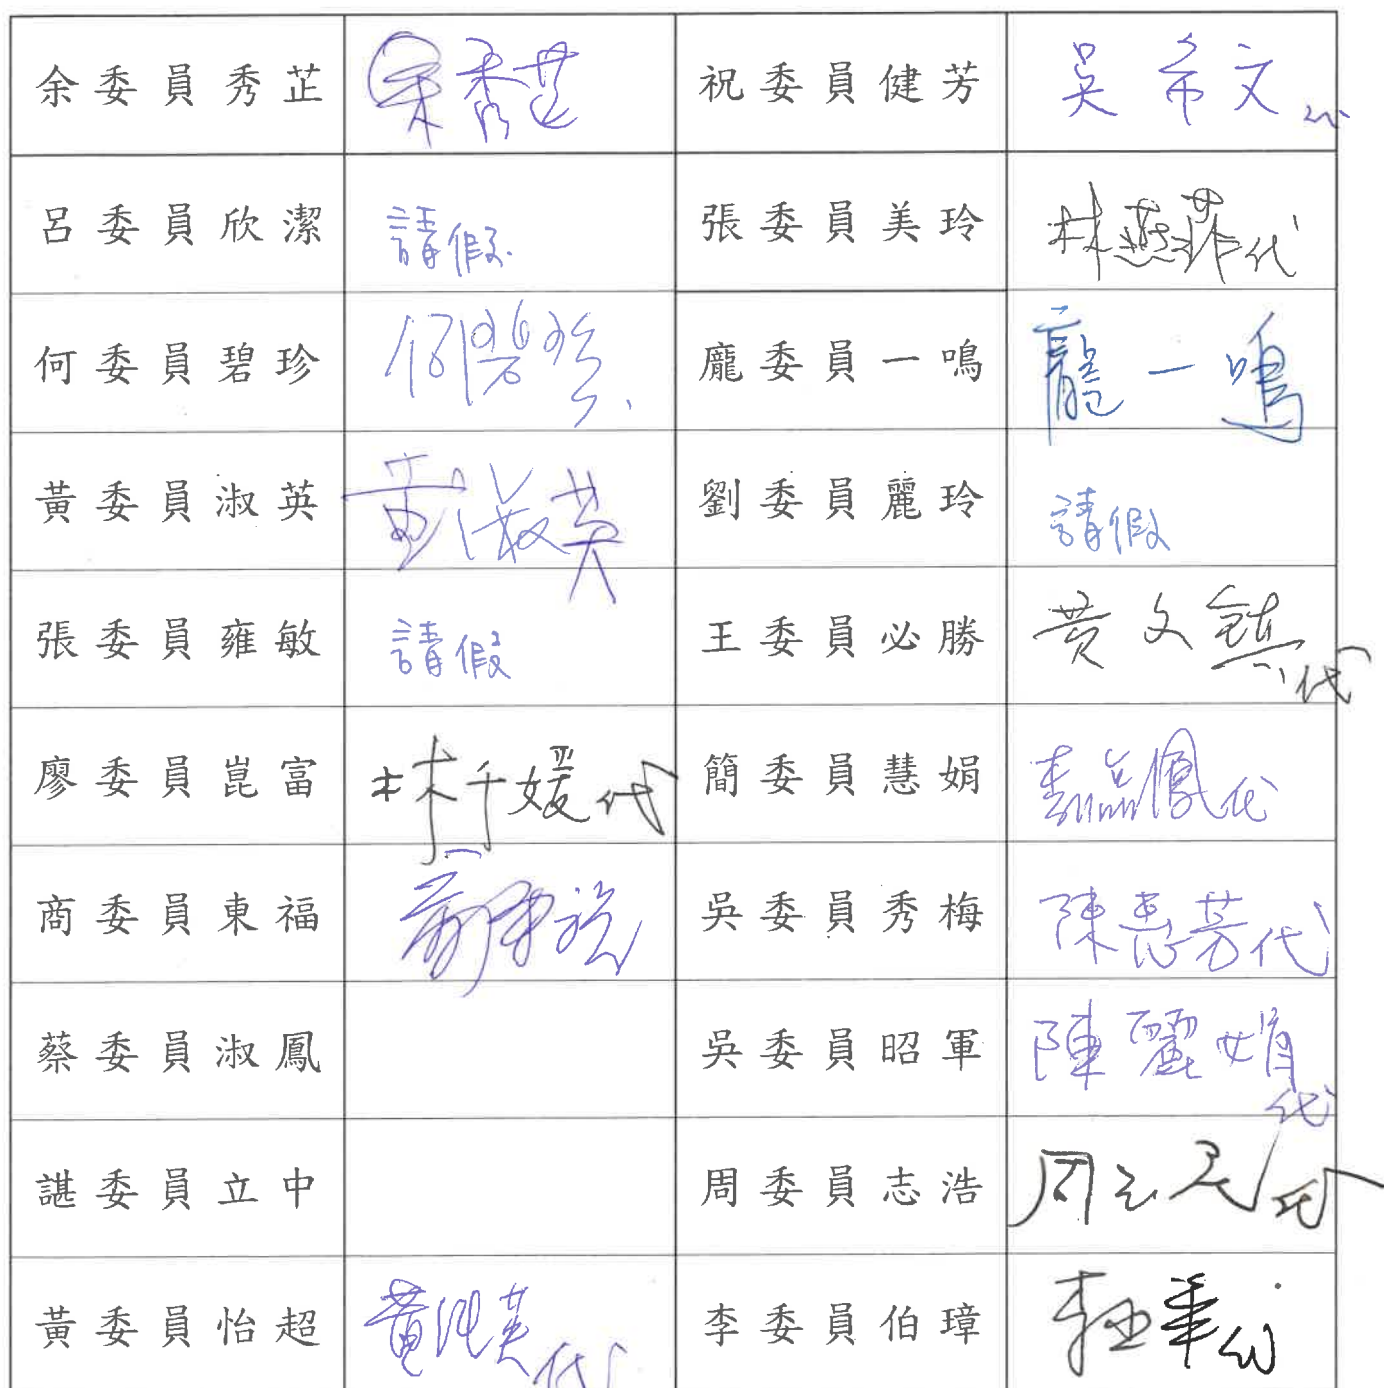 余委員秀芷 余秀芷 祝委員健芳 吳希文代
呂委員欣潔 請假 張委員美玲 林燕菲代
何委員碧珍 何碧珍 龐委員一鳴 龐一鳴
黃委員淑英 黃淑英 劉委員麗玲 請假
張委員雍敏 請假 王委員必勝 黃文鎮代
廖委員崑富 林千媛代 簡委員慧娟 代
商委員東福 商東福 吳委員秀梅 陳惠芳代
蔡委員淑鳳 吳委員昭軍 陳麗娟代
諶委員立中 周委員志浩 周 代
黃委員怡超 黃純英代 李委員伯璋 代